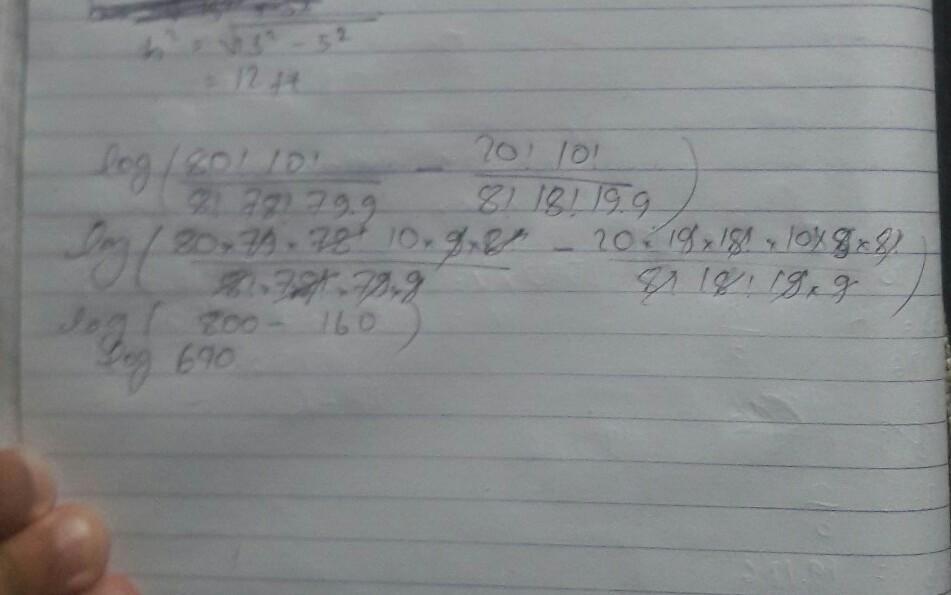 h² = √13² - 5²
= 12
log ( 80! 10! / 8! 78! 79.9 - 20! 10! / 8! 18! 19.9 )
log ( 80 × 79 × 78! 10 × 9 × 8! / 8! × 78! × 79 × 9 - 20 × 19 × 18! × 10 × 9 × 8! / 8! 18! 19 × 9 )
log ( 800 - 160 )
log 640